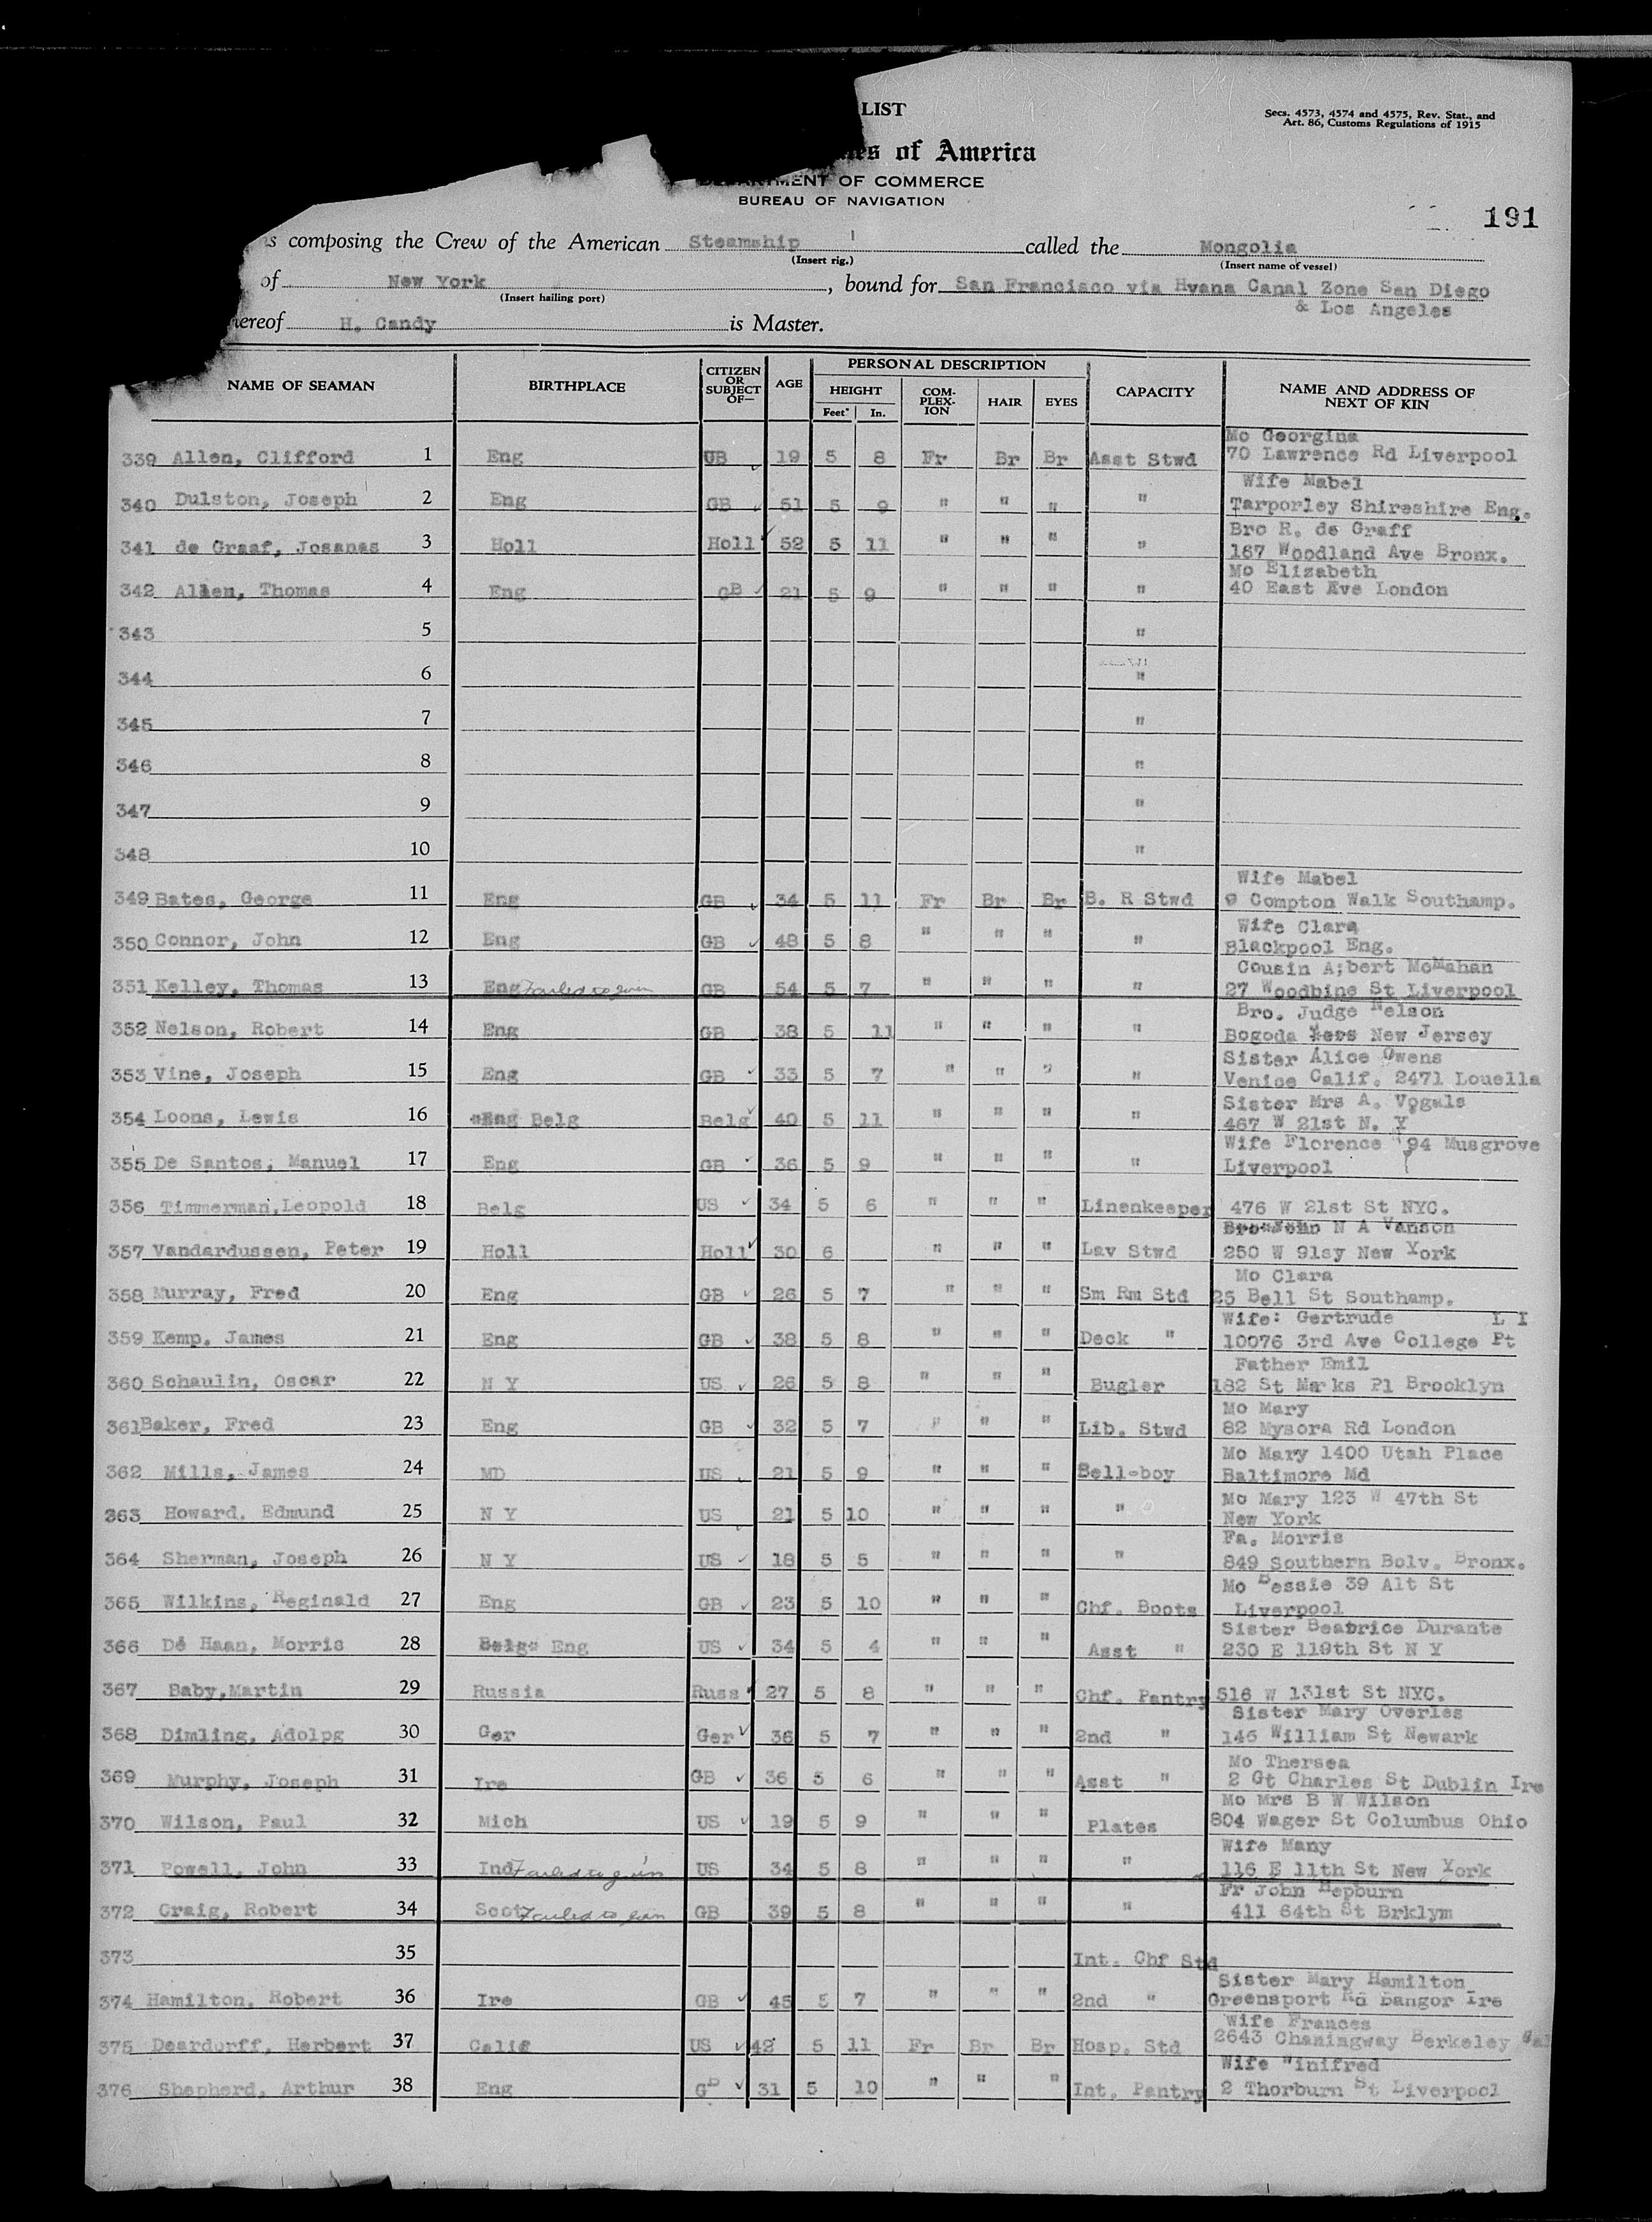 LIST
Secs. 4573, 4574 and 4575, Rev. Stat., and
Art. 86, Customs Regulations of 1915
of America
DEPARTMENT OF COMMERCE
BUREAU OF NAVIGATION
191
composing the Crew of the American Steamship called the Mongolia
(Insert rig.) (Insert name of vessel)
of New York, bound for San Francisco via Hvana Canal Zone San Diego
(Insert hailing port) & Los Angeles
hereof H. Candy is Master.
NAME OF SEAMAN BIRTHPLACE CITIZEN OR SUBJECT OF— AGE PERSONAL DESCRIPTION CAPACITY NAME AND ADDRESS OF NEXT OF KIN
HEIGHT COM-PLEX-ION HAIR EYES
Feet In.
Mo Georgina
339 Allen, Clifford 1 Eng UB 19 5 8 Fr Br Br Asst Stwd 70 Lawrence Rd Liverpool
Wife Mabel
340 Dulston, Joseph 2 Eng GB 51 5 9 " " " " Tarporley Shireshire Eng.
Bro R. de Graff
341 de Graaf, Josanas 3 Holl Holl 52 5 11 " " " " 167 Woodland Ave Bronx.
Mo Elizabeth
342 Allen, Thomas 4 Eng GB 21 5 9 " " " " 40 East Ave London
343 5 "
344 6 "
345 7 "
346 8 "
347 9 "
348 10 "
Wife Mabel
349 Bates, George 11 Eng GB 34 5 11 Fr Br Br B. R Stwd 9 Compton Walk Southamp.
Wife Clara
350 Connor, John 12 Eng GB 48 5 8 " " " " Blackpool Eng.
Cousin A;bert McMahan
351 Kelley, Thomas 13 Eng Failed to join GB 54 5 7 " " " " 27 Woodbine St Liverpool
Bro. Judge Nelson
352 Nelson, Robert 14 Eng GB 38 5 11 " " " " Bogoda New Jersey
Sister Alice Owens
353 Vine, Joseph 15 Eng GB 33 5 7 " " " " Venice Calif. 2471 Louella
Sister Mrs A. Vogals
354 Loons, Lewis 16 Eng Belg Belg 40 5 11 " " " " 467 W 21st N. Y
Wife Florence 94 Musgrove
355 De Santos, Manuel 17 Eng GB 36 5 9 " " " " Liverpool
356 Timmerman,Leopold 18 Belg US 34 5 6 " " " Linenkeeper 476 W 21st St NYC.
Bro John N A Vanson
357 Vandardussen, Peter 19 Holl Holl 30 6 " " " Lav Stwd 250 W 91sy New York
Mo Clara
358 Murray, Fred 20 Eng GB 26 5 7 " " " Sm Rm Std 25 Bell St Southamp.
Wife: Gertrude L I
359 Kemp, James 21 Eng GB 38 5 8 " " " Deck " 10076 3rd Ave College Pt
Father Emil
360 Schaulin, Oscar 22 N Y US 26 5 8 " " " Bugler 182 St Marks Pl Brooklyn
Mo Mary
361 Baker, Fred 23 Eng GB 32 5 7 " " " Lib. Stwd 82 Mysora Rd London
Mo Mary 1400 Utah Place
362 Mills, James 24 MD US 21 5 9 " " " Bell-boy Baltimore Md
Mo Mary 123 W 47th St
363 Howard, Edmund 25 N Y US 21 5 10 " " " " New York
Fa. Morris
364 Sherman, Joseph 26 N Y US 18 5 5 " " " " 849 Southern Bolv. Bronx.
Mo Bessie 39 Alt St
365 Wilkins, Reginald 27 Eng GB 23 5 10 " " " Chf. Boots Liverpool
Sister Beatrice Durante
366 De Haan, Morris 28 Belg. Eng US 34 5 4 " " " Asst " 230 E 119th St N Y
367 Baby,Martin 29 Russia Russ 27 5 8 " " " Chf. Pantry 516 W 131st St NYC.
Sister Mary Overles
368 Dimling, Adolpg 30 Ger Ger 36 5 7 " " " 2nd " 146 William St Newark
Mo Thersea
369 Murphy, Joseph 31 Ire GB 36 5 6 " " " Asst " 2 Gt Charles St Dublin Ire
Mo Mrs B W Wilson
370 Wilson, Paul 32 Mich US 19 5 9 " " " Plates 804 Wager St Columbus Ohio
Wife Many
371 Powell, John 33 Ind Failed to join US 34 5 8 " " " " 116 E 11th St New York
Fr John Hepburn
372 Craig, Robert 34 Scot Failed to join GB 39 5 8 " " " " 411 64th St Brklym
373 35 Int. Chf Std
Sister Mary Hamilton
374 Hamilton, Robert 36 Ire GB 45 5 7 " " " 2nd " Greensport Rd Bangor Ire
Wife Frances
375 Deardorff, Herbert 37 Calif US 42 5 11 Fr Br Br Hosp. Std 2643 Chaningway Berkeley Cal
Wife Winifred
376 Shepherd, Arthur 38 Eng GB 31 5 10 " " " Int. Pantry 2 Thorburn St Liverpool